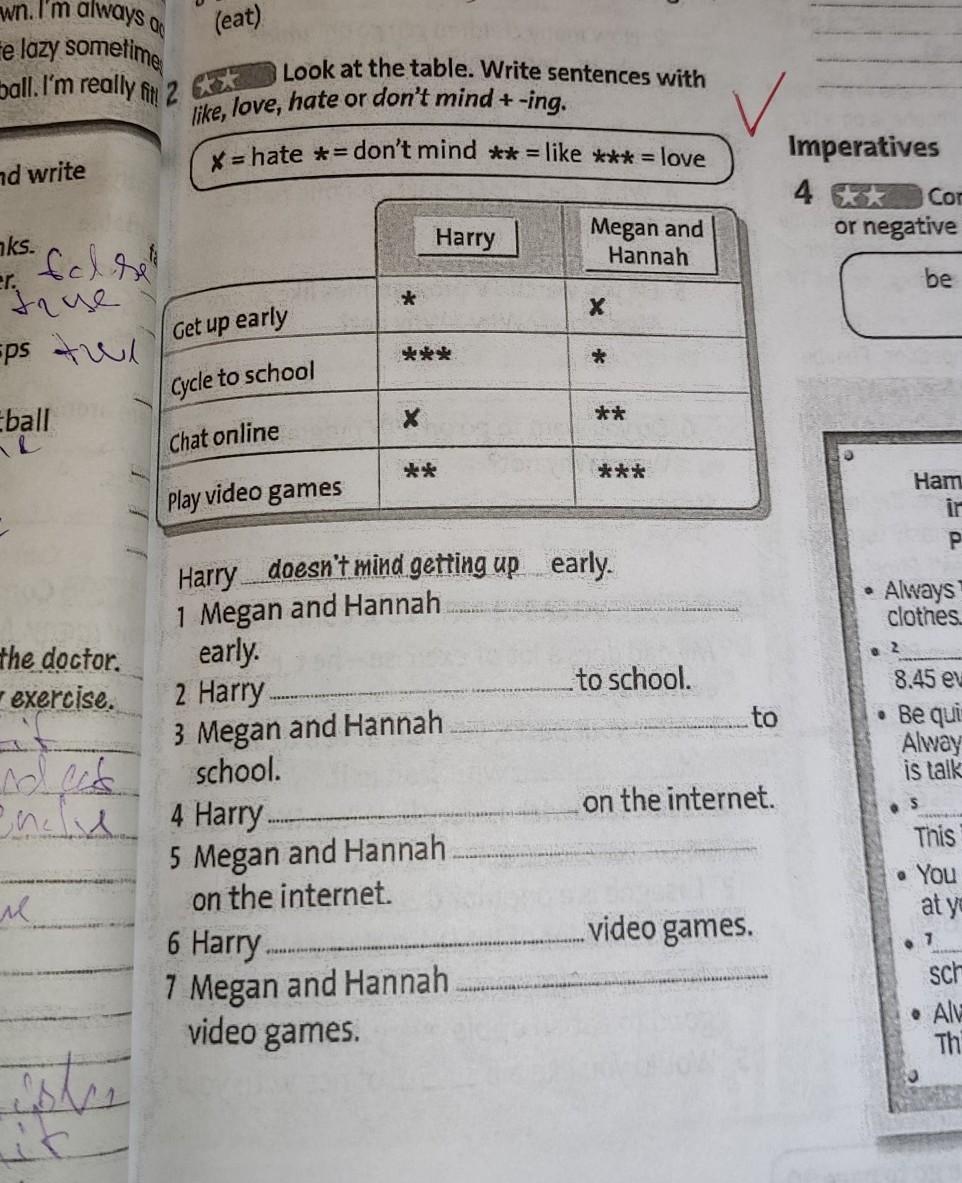 wn. I'm always
e lazy sometime
ball. I'm really fit!
nd write
nks.
er.
false
true
ps
tball
the doctor.
exercise.
(eat)
2 Look at the table. Write sentences with
like, love, hate or don't mind + -ing.
✗ = hate * = don't mind ** = like *** = love
Harry Megan and Hannah
Get up early * ✗
Cycle to school *** *
Chat online ✗ **
Play video games ** ***
Harry doesn't mind getting up early.
1 Megan and Hannah
early.
2 Harry to school.
3 Megan and Hannah to
school.
4 Harry on the internet.
5 Megan and Hannah
on the internet.
6 Harry video games.
7 Megan and Hannah
video games.
Imperatives
4 Cor
or negative
be
Ham
in
P
• Always
clothes.
• 2
8.45 ev
• Be qui
Alway
is talk
• 5
This
• You
at yo
• 7
sch
• Alw
Th